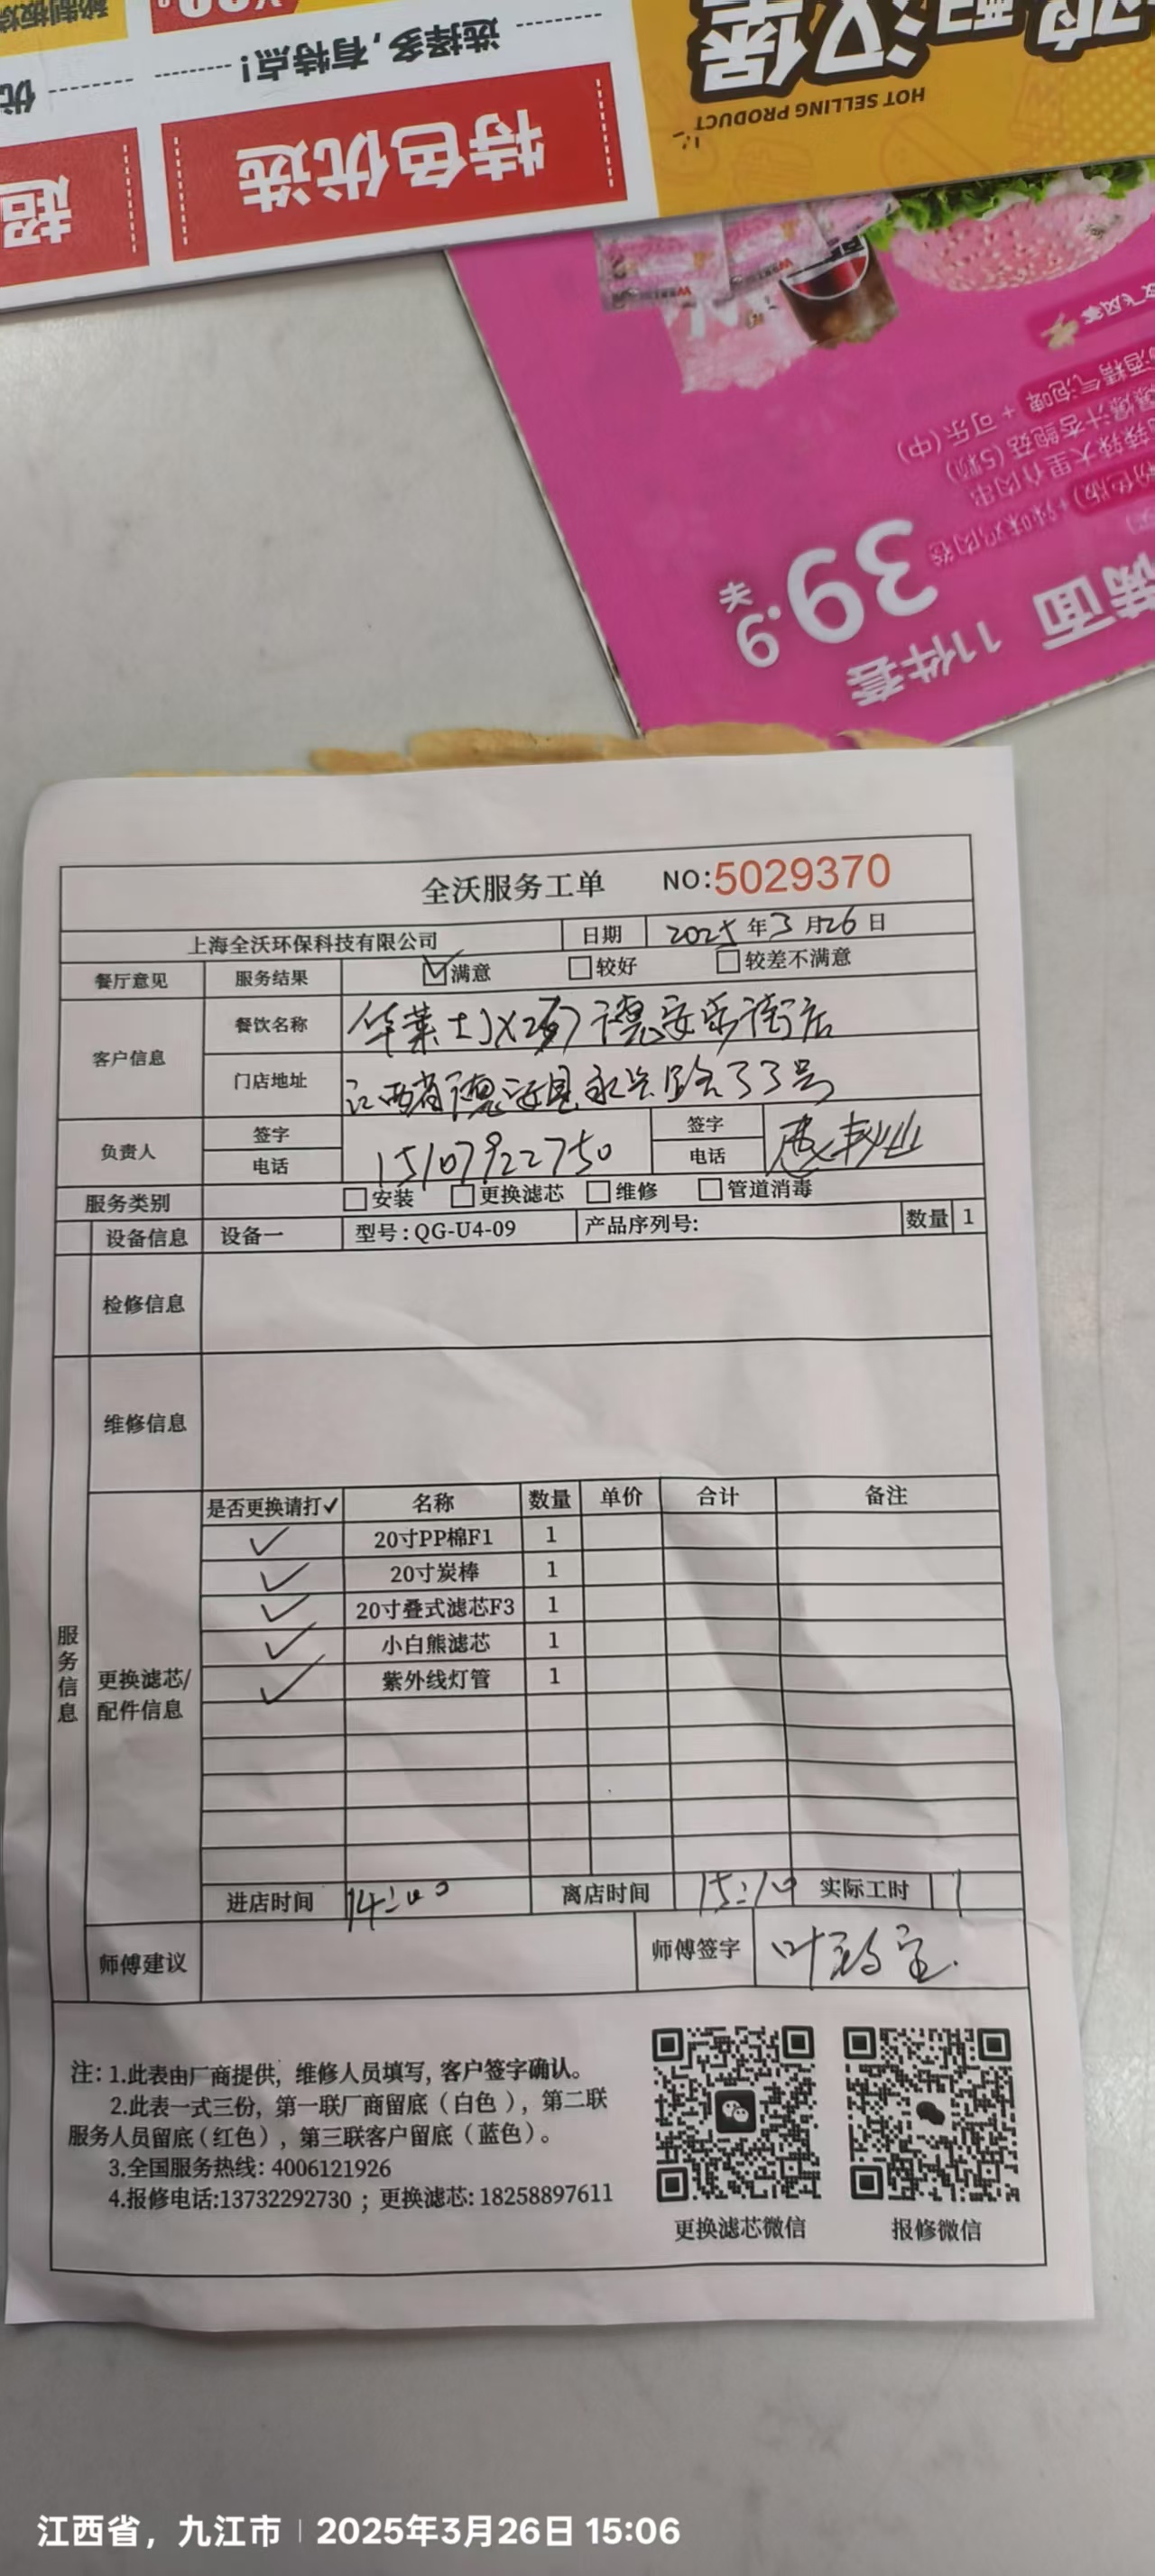 选择多,有特点!
特色优选
超
优
HOT SELLING PRODUCT
汉堡
+ 可乐(中)
(5颗)
39.9
11件套
满面
全沃服务工单 NO:5029370
上海全沃环保科技有限公司 日期 2025年3月26日
餐厅意见 服务结果 满意 较好 较差不满意
客户信息 餐饮名称 华莱士 德安 街店
门店地址 江西省德安县永兴路33号
负责人 签字 电话 15107922750 签字 电话
服务类别 安装 更换滤芯 维修 管道消毒
设备信息 设备一 型号:QG-U4-09 产品序列号: 数量 1
检修信息
维修信息
服务信息
更换滤芯/配件信息
是否更换请打✓ 名称 数量 单价 合计 备注
✓ 20寸PP棉F1 1
✓ 20寸炭棒 1
✓ 20寸叠式滤芯F3 1
✓ 小白熊滤芯 1
✓ 紫外线灯管 1
进店时间 14:00 离店时间 15:10 实际工时 1
师傅建议 师傅签字 叶
注: 1.此表由厂商提供, 维修人员填写, 客户签字确认。
2.此表一式三份, 第一联厂商留底(白色), 第二联
服务人员留底(红色), 第三联客户留底(蓝色)。
3.全国服务热线: 4006121926
4.报修电话:13732292730 ; 更换滤芯: 18258897611
更换滤芯微信 报修微信
江西省, 九江市 | 2025年3月26日 15:06